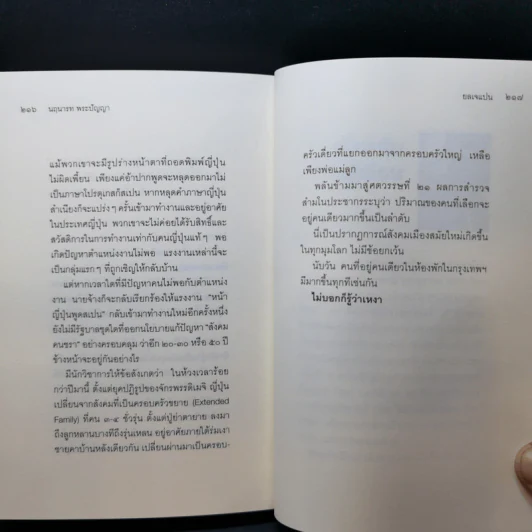 ๒๑๖ นฤนารท พระปัญญา
แม้พวกเขาจะมีรูปร่างหน้าตาที่ถอดพิมพ์ญี่ปุ่น
ไม่ผิดเพี้ยน เพียงแค่อ้าปากพูดจะหลุดออกมาไม่
เป็นภาษาโปรตุเกสก็สเปน หากหลุดคำภาษาญี่ปุ่น
สำเนียงก็จะแปร่งๆ ครั้นเข้ามาทำงานและอยู่อาศัย
ในประเทศญี่ปุ่น พวกเขาจะไม่ค่อยได้รับสิทธิ์และ
สวัสดิการในการทำงานเท่ากับคนญี่ปุ่นแท้ๆ พอ
เกิดปัญหาตำแหน่งงานไม่พอ แรงงานเหล่านี้จะ
เป็นกลุ่มแรกๆ ที่ถูกเชิญให้กลับบ้าน
แต่หากเวลาใดที่มีปัญหาคนไม่พอกับตำแหน่ง
งาน นายจ้างก็จะกลับเรียกร้องให้แรงงาน "หน้า
ญี่ปุ่นพูดสเปน" กลับเข้ามาทำงานใหม่อีกครั้งหนึ่ง
ยังไม่มีรัฐบาลชุดใดที่ออกนโยบายแก้ปัญหา "สังคม
คนชรา" อย่างครอบคลุม ว่าอีก ๒๐-๓๐ หรือ ๕๐ ปี
ข้างหน้าจะอยู่กันอย่างไร
มีนักวิชาการให้ข้อสังเกตว่า ในห้วงเวลาร้อย
กว่าปีมานี้ ตั้งแต่ยุคปฏิรูปของจักรพรรดิเมจิ ญี่ปุ่น
เปลี่ยนจากสังคมที่เป็นครอบครัวขยาย (Extended
Family) ที่คน ๓-๔ ชั่วรุ่น ตั้งแต่ปู่ย่าตายาย ลงมา
ถึงลูกหลานบางทีถึงรุ่นเหลน อยู่อาศัยภายใต้ร่มเงา
ชายคาบ้านหลังเดียวกัน เปลี่ยนผ่านมาเป็นครอบ-
ยลเจแปน ๒๑๗
ครัวเดี่ยวที่แยกออกมาจากครอบครัวใหญ่ เหลือ
เพียงพ่อแม่ลูก
พลันข้ามมาสู่ศตวรรษที่ ๒๑ ผลการสำรวจ
ล่ามโนประชากรระบุว่า ปริมาณของคนที่เลือกจะ
อยู่คนเดียวมากขึ้นเป็นลำดับ
นี่เป็นปรากฏการณ์สังคมเมืองสมัยใหม่เกิดขึ้น
ในทุกมุมโลก ไม่มีข้อยกเว้น
นับวัน คนที่อยู่คนเดียวในห้องพักในกรุงเทพฯ
มีมากขึ้นทุกทีเช่นกัน
ไม่บอกก็รู้ว่าเหงา